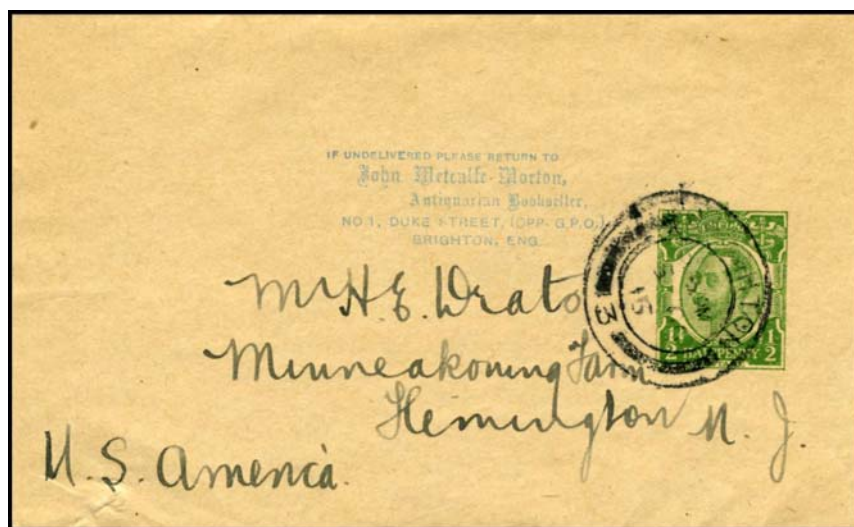 IF UNDELIVERED PLEASE RETURN TO
John Metcalfe-Morton,
Antiquarian Bookseller,
NO 1, DUKE STREET, (OPP. G.P.O.)
BRIGHTON, ENG
Mr H. E. Drato
Minneakoning Farm
Flemington N. J.
U. S. America.
3
15
HALFPENNY
1/2
1/2